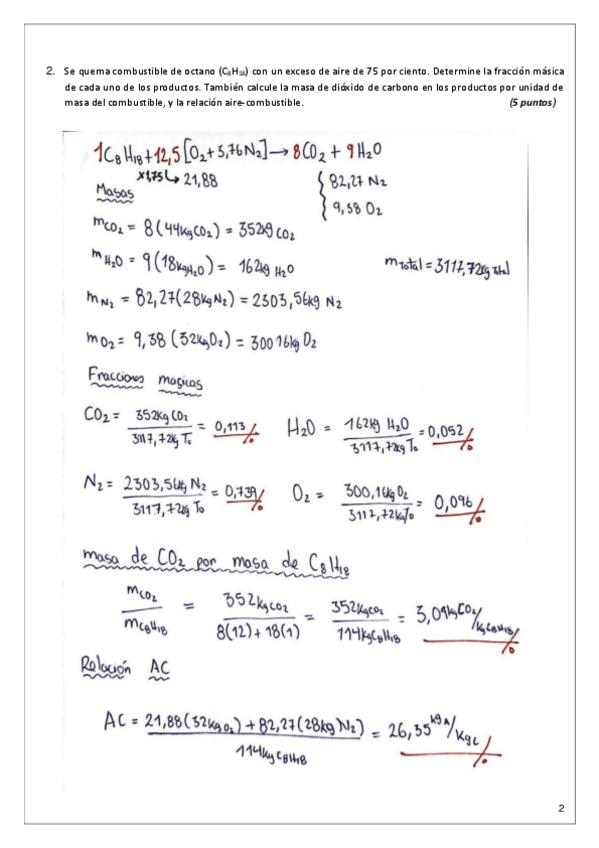 2. Se quema combustible de octano (C₈H₁₈) con un exceso de aire de 75 por ciento. Determine la fracción másica
de cada uno de los productos. También calcule la masa de dióxido de carbono en los productos por unidad de
masa del combustible, y la relación aire-combustible. (5 puntos)
1C₈H₁₈+12,5[O₂+3,76N₂]→8CO₂+9H₂O
x1,75↳21,88 { 82,27 N₂
9,38 O₂
Masas
mCO₂ = 8(44kgCO₂) = 352kg CO₂
mH₂O = 9(18kgH₂O) = 162kg H₂O mTotal = 3117,72kg Total
mN₂ = 82,27(28kgN₂) = 2303,56kg N₂
mO₂ = 9,38(32kgO₂) = 300,16kg O₂
Fracciones magicas
CO₂ = 352kg CO₂ / 3117,72kg To = 0,113 H₂O = 162kg H₂O / 3117,72kg To = 0,052
N₂ = 2303,56kg N₂ / 3117,72kg To = 0,739 O₂ = 300,16kg O₂ / 3117,72kg To = 0,096
masa de CO₂ por masa de C₈H₁₈
mCO₂ / mC₈H₁₈ = 352kgCO₂ / 8(12)+18(1) = 352kgCO₂ / 114kgC₈H₁₈ = 3,09kgCO₂/kgC₈H₁₈
Relación AC
AC = 21,88(32kgO₂)+82,27(28kg N₂) / 114kg C₈H₁₈ = 26,35 kg A/kg C
2